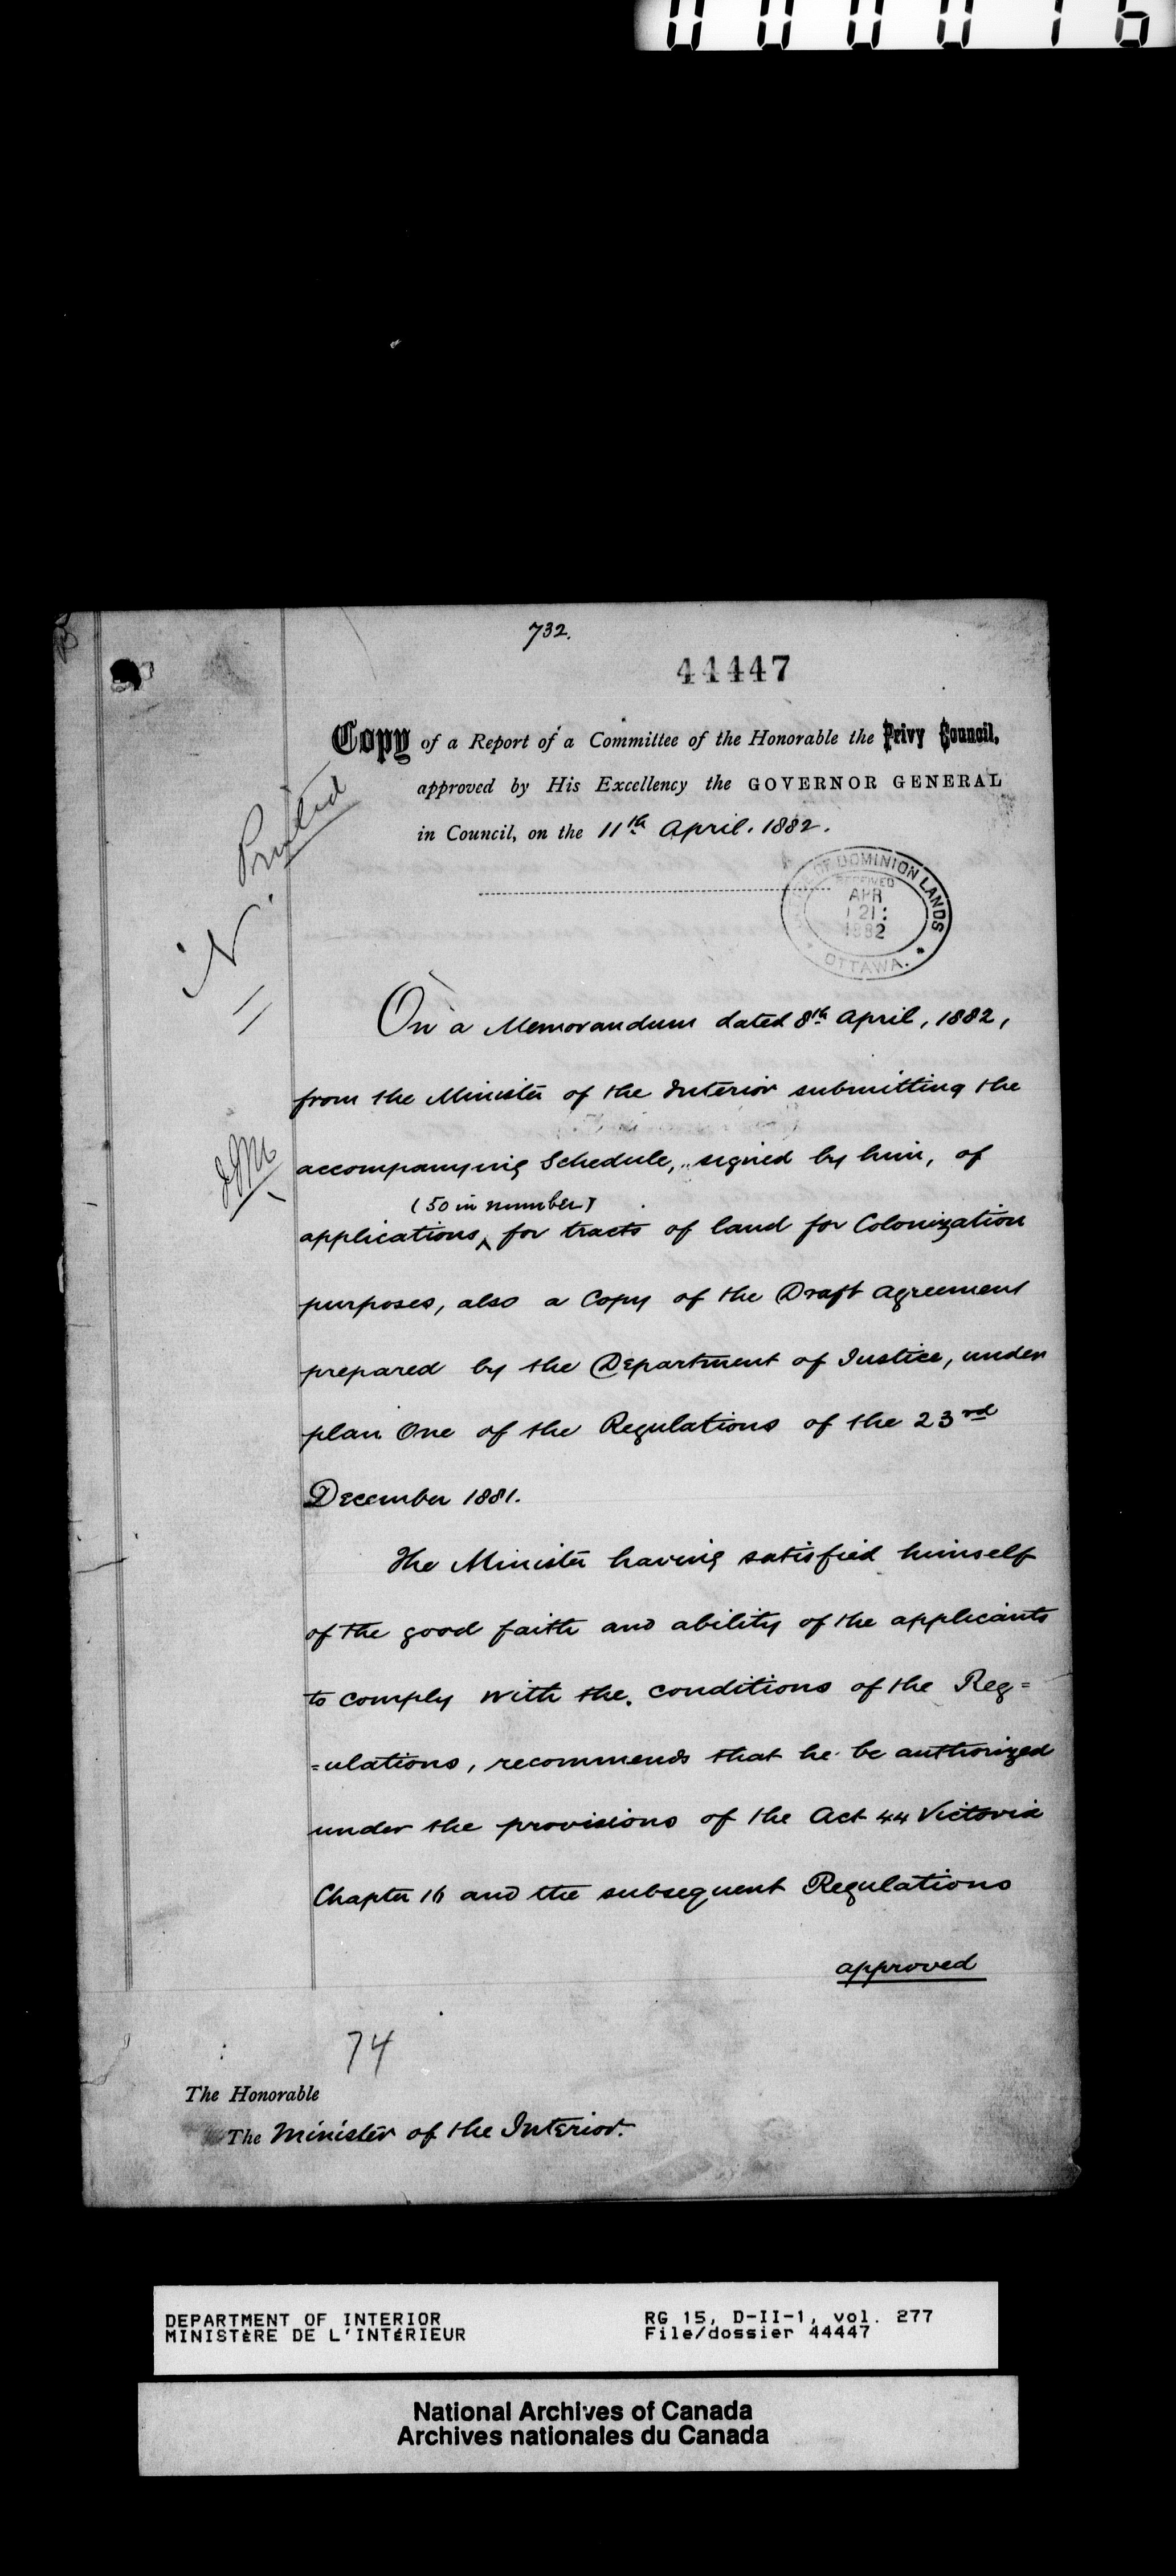 000016
732.
44447
Copy of a Report of a Committee of the Honorable the Privy Council,
approved by His Excellency the GOVERNOR GENERAL
in Council, on the 11th April. 1882.
Printed
N.
OF DOMINION LANDS
RECEIVED
APR
21
1882
OTTAWA.
On a Memorandum dated 8th April, 1882,
from the Minister of the Interior submitting the
accompanying Schedule, signed by him, of
(50 in number)
applications, for tracts of land for Colonization
purposes, also a Copy of the Draft Agreement
prepared by the Department of Justice, under
plan One of the Regulations of the 23rd
December 1881.
The Minister having satisfied himself
of the good faith and ability of the applicants
to comply with the conditions of the Reg=
=ulations, recommends that he be authorized
under the provisions of the Act 44 Victoria
Chapter 16 and the subsequent Regulations
approved
74
The Honorable
The Minister of the Interior.
DEPARTMENT OF INTERIOR
MINISTÈRE DE L'INTÉRIEUR
RG 15, D-II-1, vol. 277
File/dossier 44447
National Archives of Canada
Archives nationales du Canada